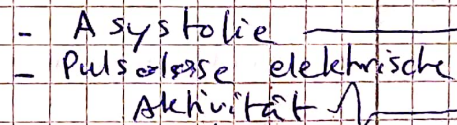 - Asystolie
- Pulslose elektrische
Aktivität